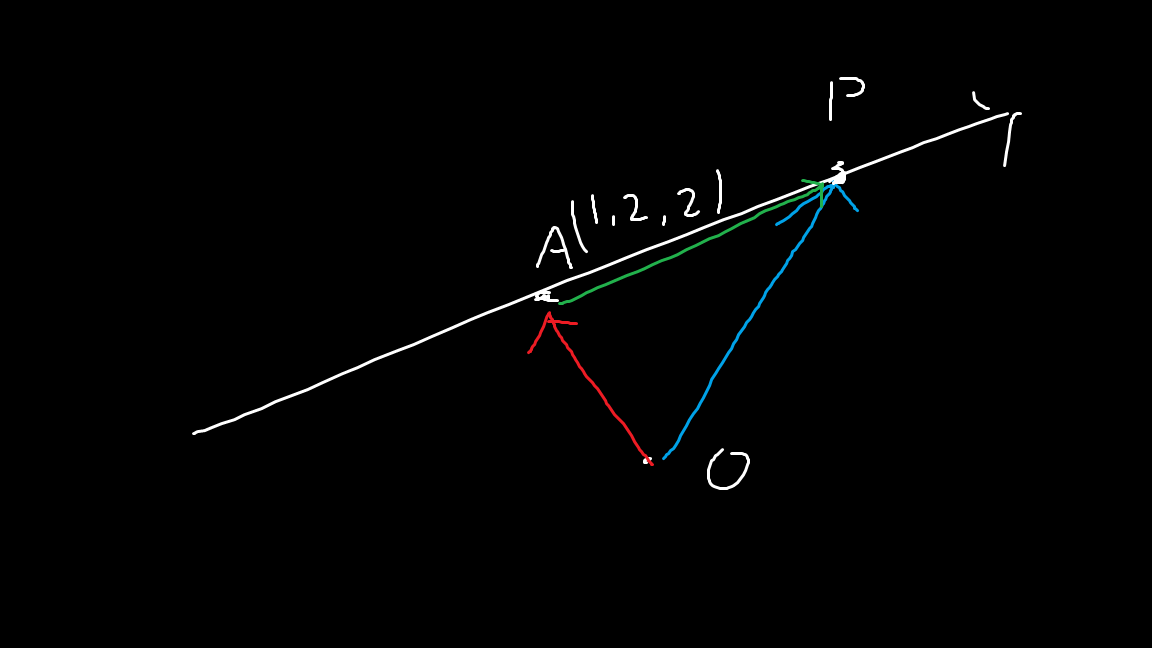 P
A(1,2,2)
O